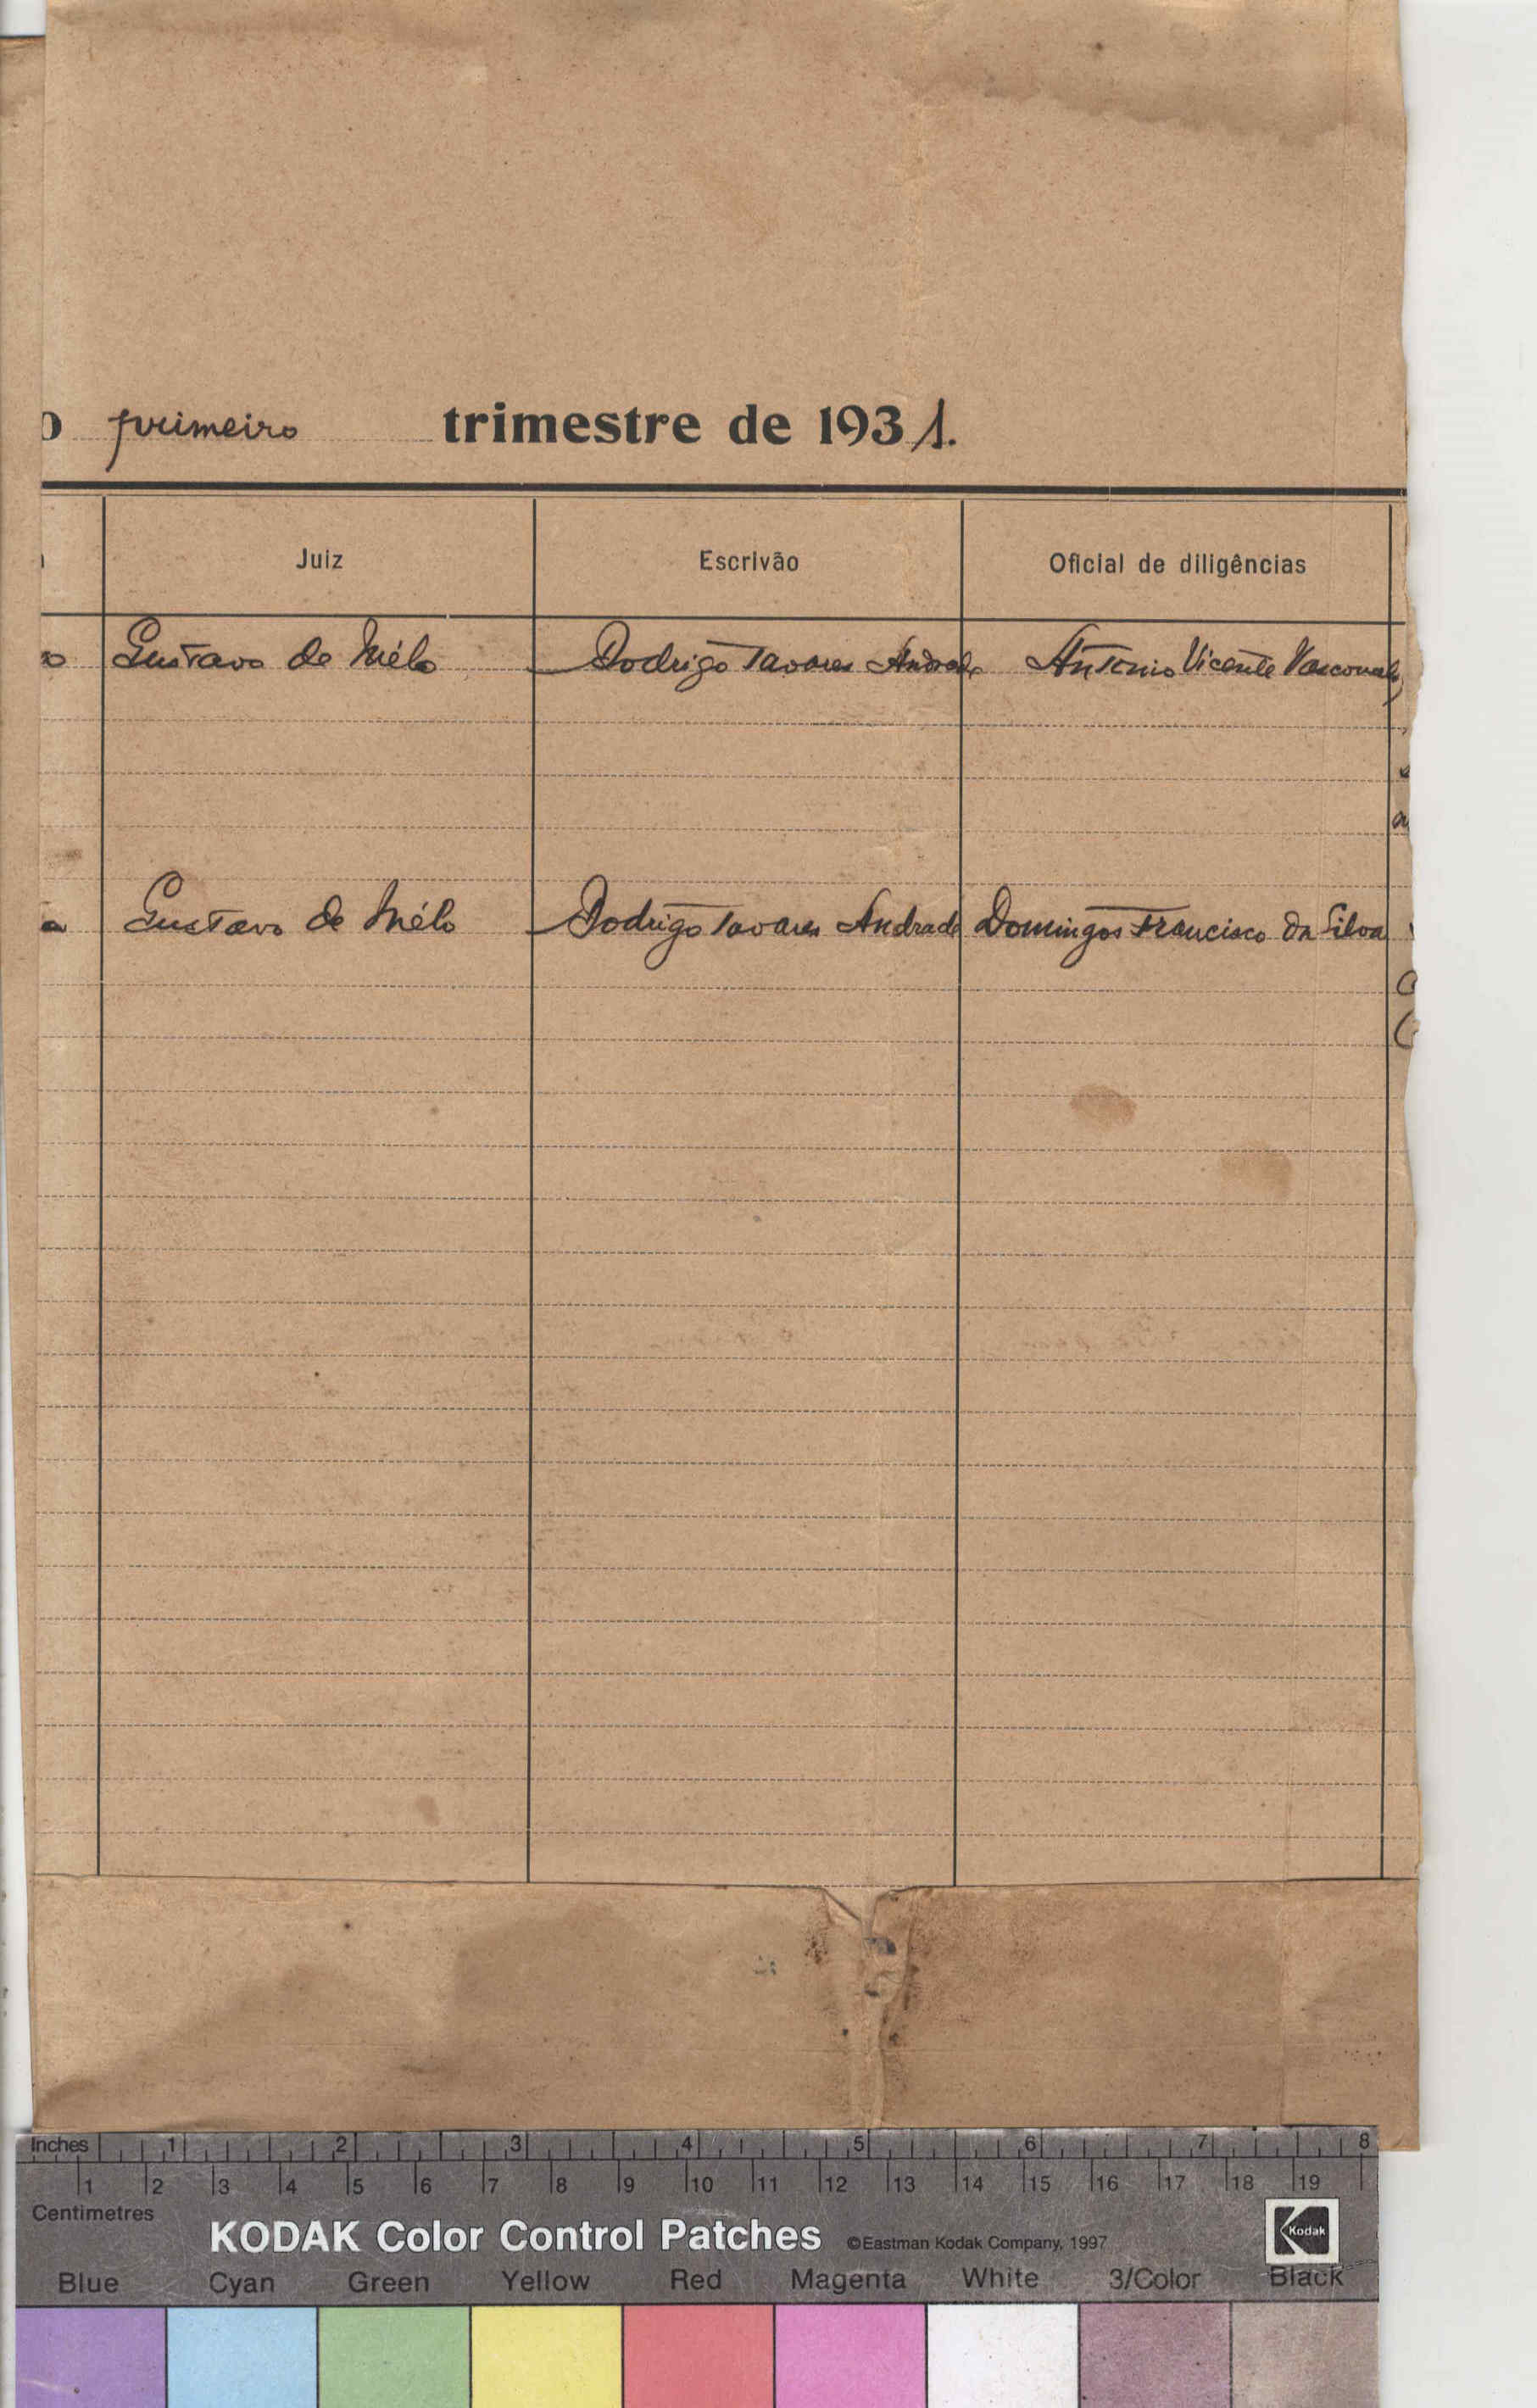 o primeiro trimestre de 1931.
Juiz Escrivão Oficial de diligências
o Gustavo de Mélo Rodrigo Tavares Andrade Antonio Vicente
a
a Gustavo de Mélo Rodrigo Tavares Andrade Domingos Francisco da Silva
Inches 1 2 3 4 5 6 7 8
1 2 3 4 5 6 7 8 9 10 11 12 13 14 15 16 17 18 19
Centimetres
KODAK Color Control Patches ©Eastman Kodak Company, 1997 Kodak
Blue Cyan Green Yellow Red Magenta White 3/Color Black